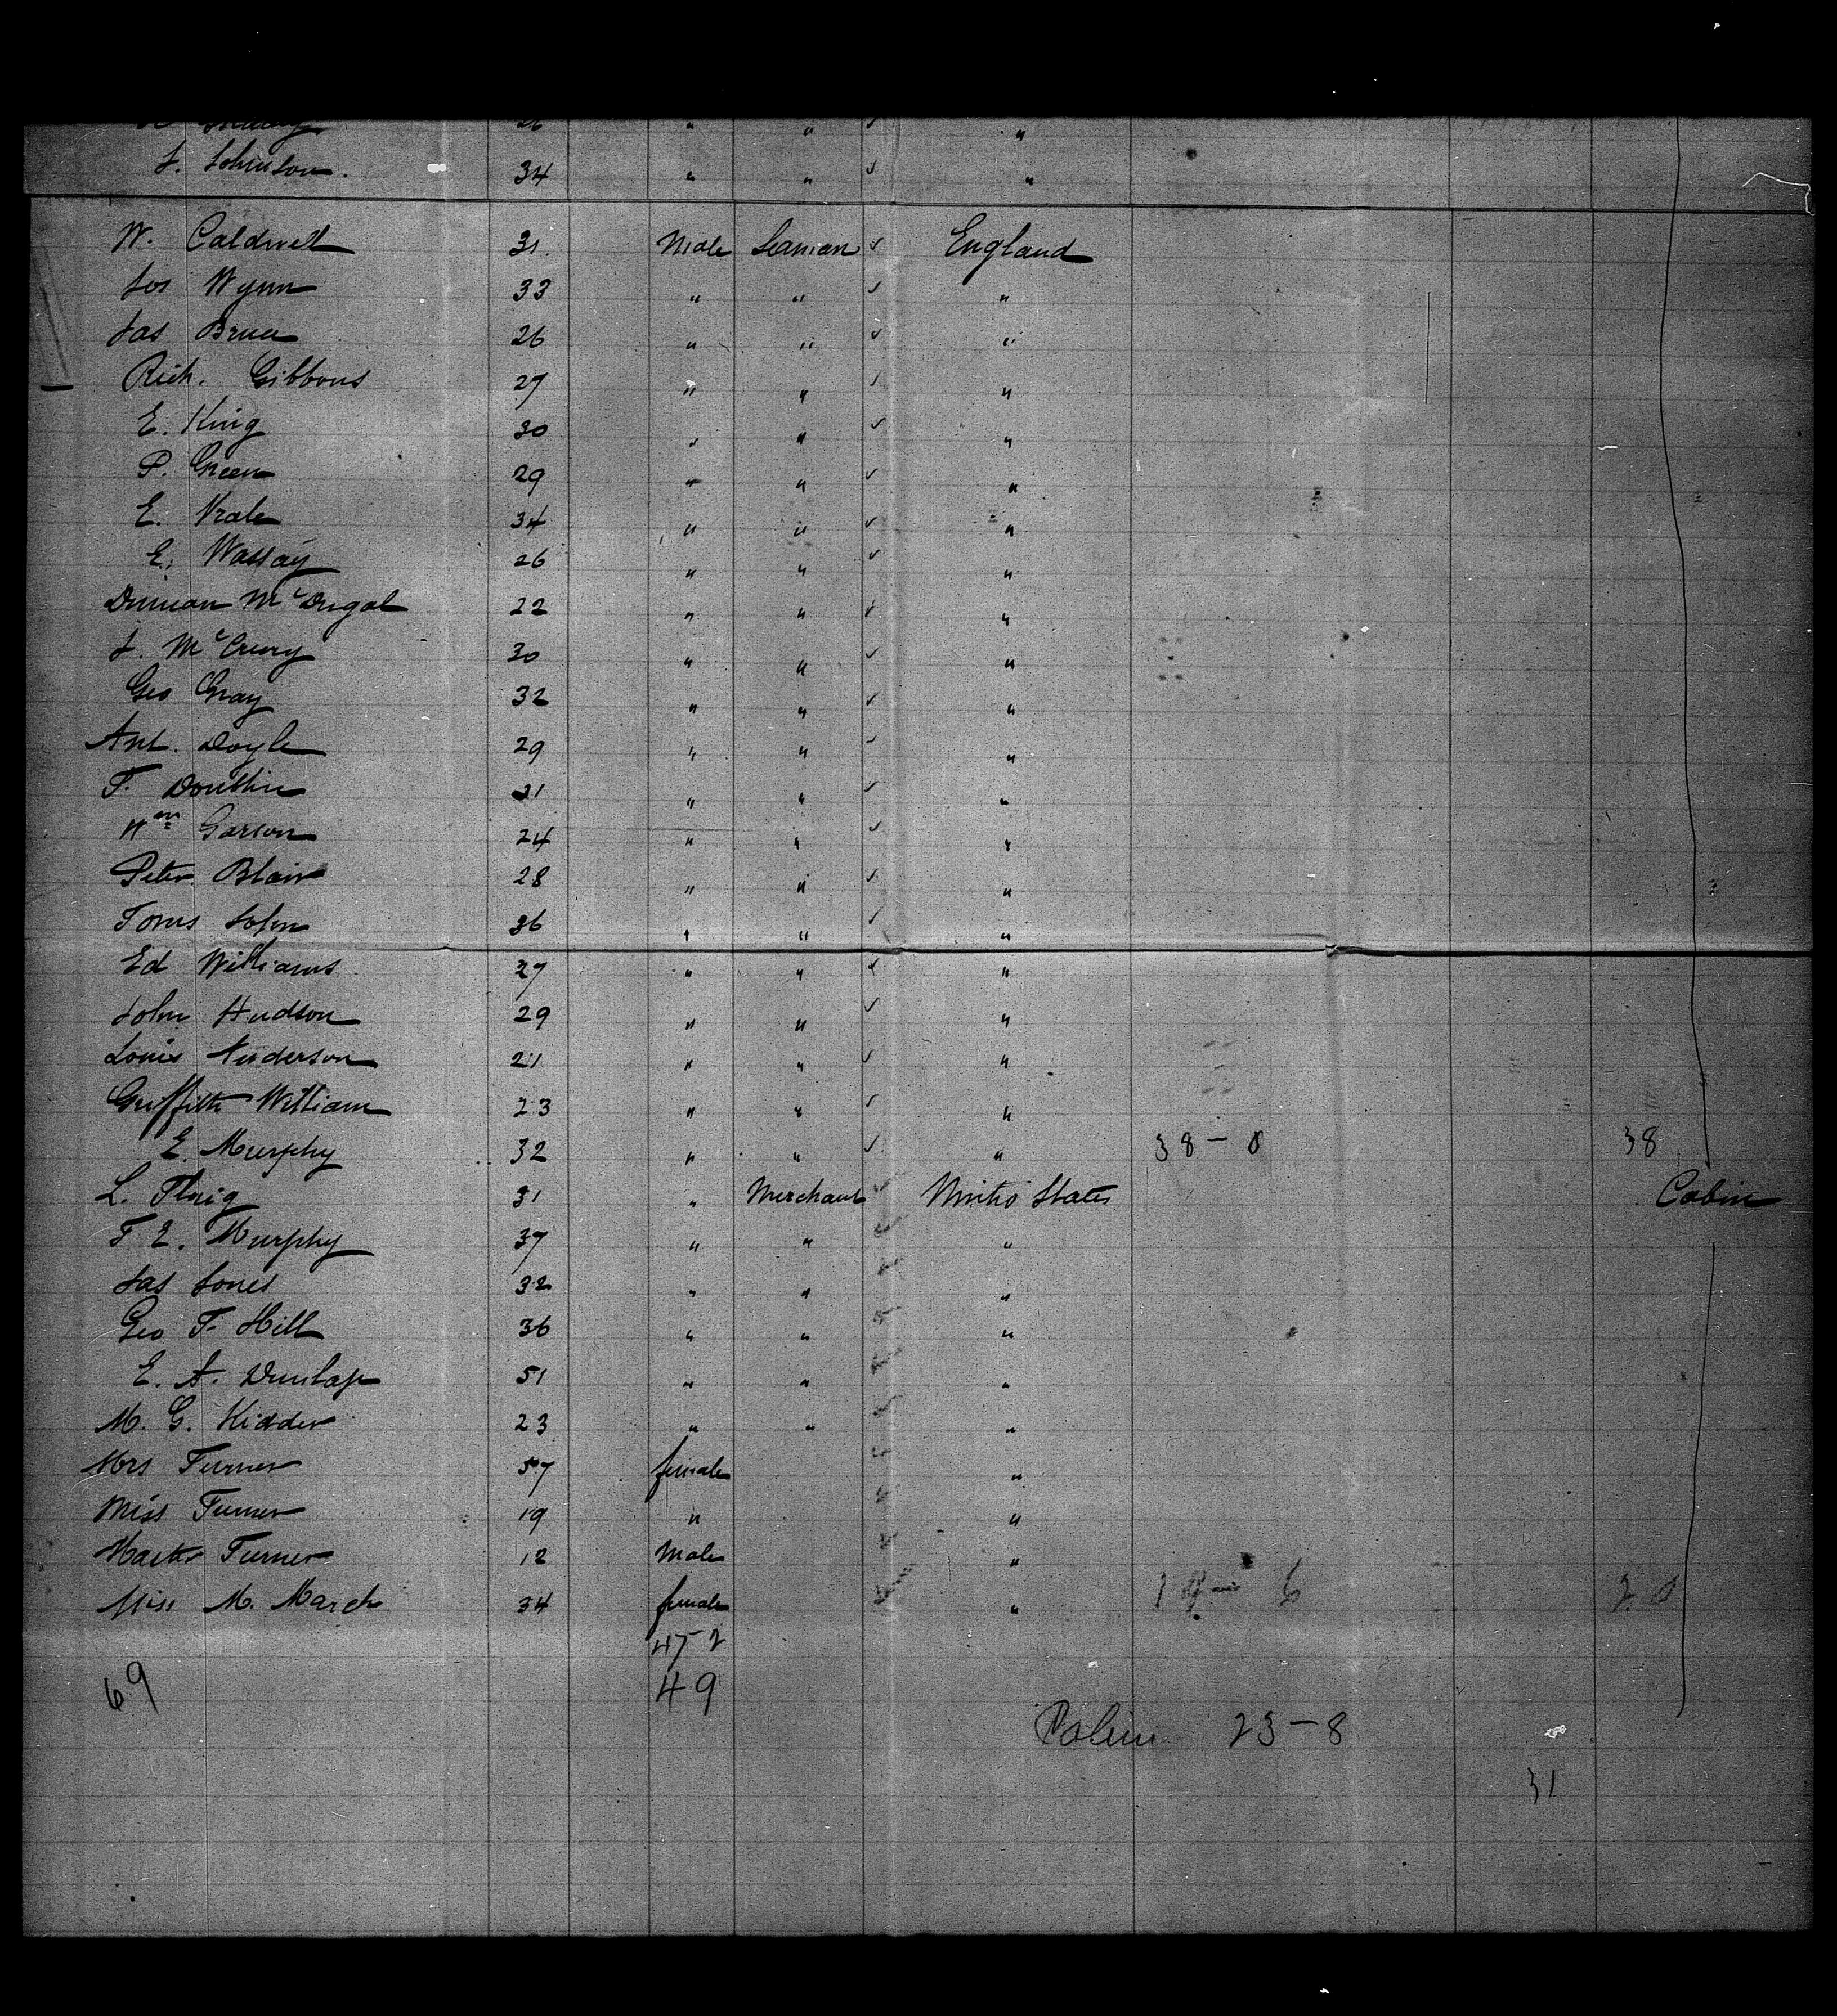 26 " " ✓ "
J. Johnston. 34 " " ✓ "
W. Caldwell 31. Male Seaman ✓ England
Jos Wynn 33 " " ✓ "
Jas Bruce 26 " " ✓ "
Rich. Gibbons 27 " " ✓ "
E. King 30 " " ✓ "
P. Green 29 " " ✓ "
E. 34 " " ✓ "
E. Wassay 26 " " ✓ "
Duncan McDugal 22 " " ✓ "
J. McCrury 30 " " ✓ "
Geo Gray 32 " " ✓ "
Ant. Doyle 29 " " ✓ "
T. 21 " " ✓ "
Wm Garson 24 " " ✓ "
Peter Blair 28 " " ✓ "
Toms John 36 " " ✓ "
Ed Williams 27 " " ✓ "
John Hudson 29 " " ✓ "
Louis Anderson 21 " " ✓ "
Griffith William 23 " " ✓ "
E. Murphy 32 " " ✓ " 38 - 0 38
L. 31 " Merchant ✓ United States Cabin
T E. Murphy 37 " " ✓ "
Jas Jones 32 " " ✓ "
Geo T. Hill 36 " " ✓ "
E. A. Dunlap 51 " " ✓ "
M. G. Kidder 23 " " ✓ "
Mrs Turner 57 female ✓ "
Miss Turner 19 " ✓ "
Master Turner 12 Male ✓ "
Miss M. March 34 female ✓ " 14 - 6 20
47 - 2
69 49
Cabin 23 - 8
31